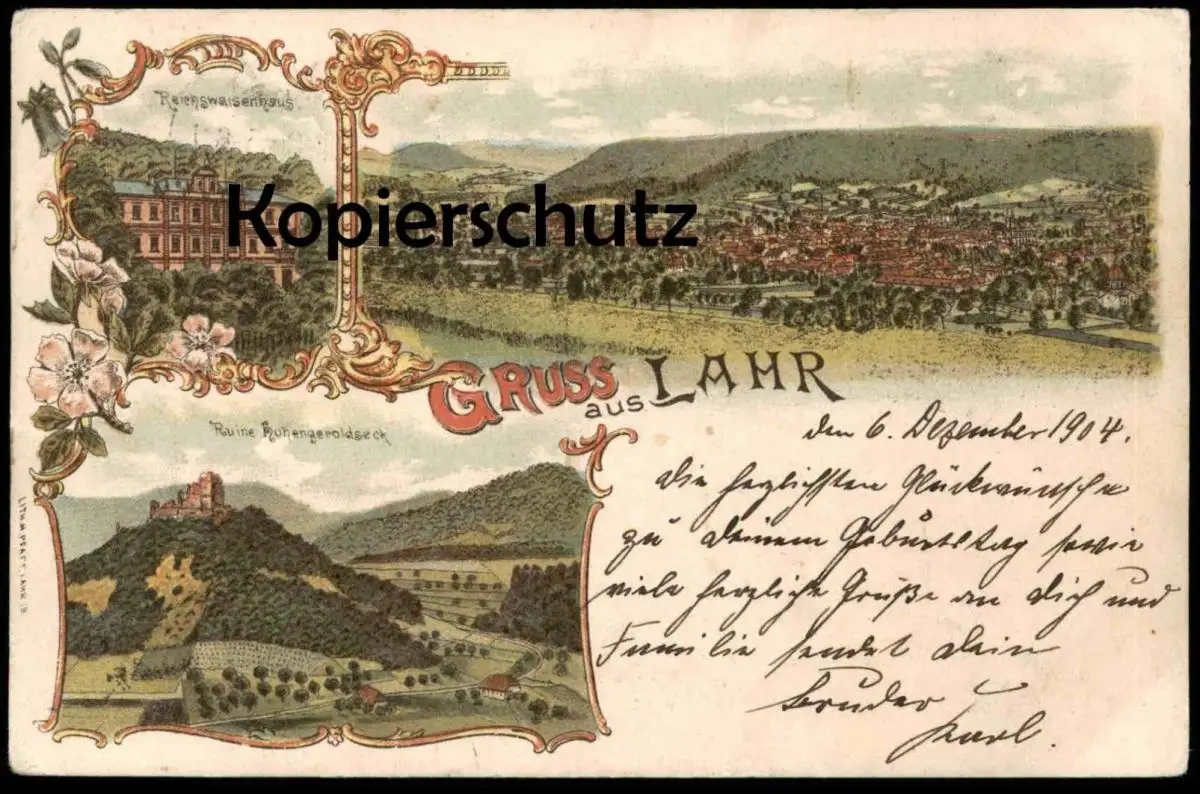 Reichswaisenhaus
Kopierschutz
GRUSS aus LAHR
Ruine Hohengeroldseck
den 6. Dezember 1904.
Die herzlichsten Glückwünsche
zu deinem Geburtstag sowie
viele herzliche Grüße an Dich und
Familie sendet dein
Bruder
Karl.
LITH. LAHR